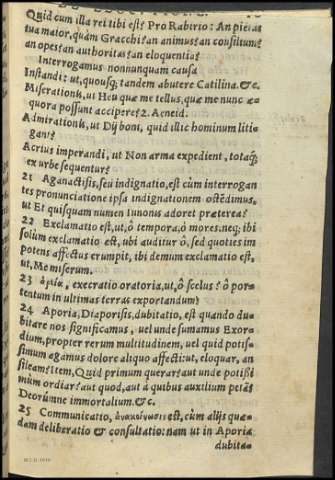 Quid cum illa rei tibi est? Pro Rabirio: An pietas
tua maior, quàm Gracchi? an animus? an consilium?
an opes? an authoritas? an eloquentia?
Interrogamus nonnunquam causa
Instandi: ut, quousq; tandem abutere Catilina. &c.
Miserationis, ut Heu quæ me tellus, quæ me nunc æ-
quora possunt accipere? 2. Aeneid.
Admirationis, ut Dij boni, quid illic hominum liti-
gant?
Acrius imperandi, ut Non arma expedient, totaq́;
ex urbe sequentur?
21 Aganactisis, seu indignatio, est cùm interrogan
tes pronunciatione ipsa indignationem ostēdimus,
ut Et quisquam numen Iunonis adoret præterea?
22 Exclamatio est, ut, ô tempora, ô mores. neq; ibi
solùm exclamatio est, ubi auditur ô, sed quoties im
potens affectus erumpit, ibi demum exclamatio est,
ut, Me miserum.
23 execratio oratoria, ut, ô scelus? ô por-
tentum in ultimas terras exportandum?
24 Aporia, Diaporisis, dubitatio, est quando du-
bitare nos significamus, uel unde sumamus Exor-
dium, propter rerum multitudinem, uel quid potis-
simum agamus dolore aliquo affecti: ut, eloquar, an
sileam? Item, Quid primum querar? aut unde potiss
mùm ordiar? aut quod, aut à quibus auxilium petā?
Deorúmne immortalium. &c.
25 Communicatio, ἀνακοίνωσις est, cùm alijs quæ-
dam deliberatio & consultatio: nam ut in Aporia
dubita-